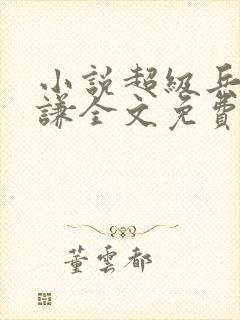 小說超級兵
謙全文免費
董雲都